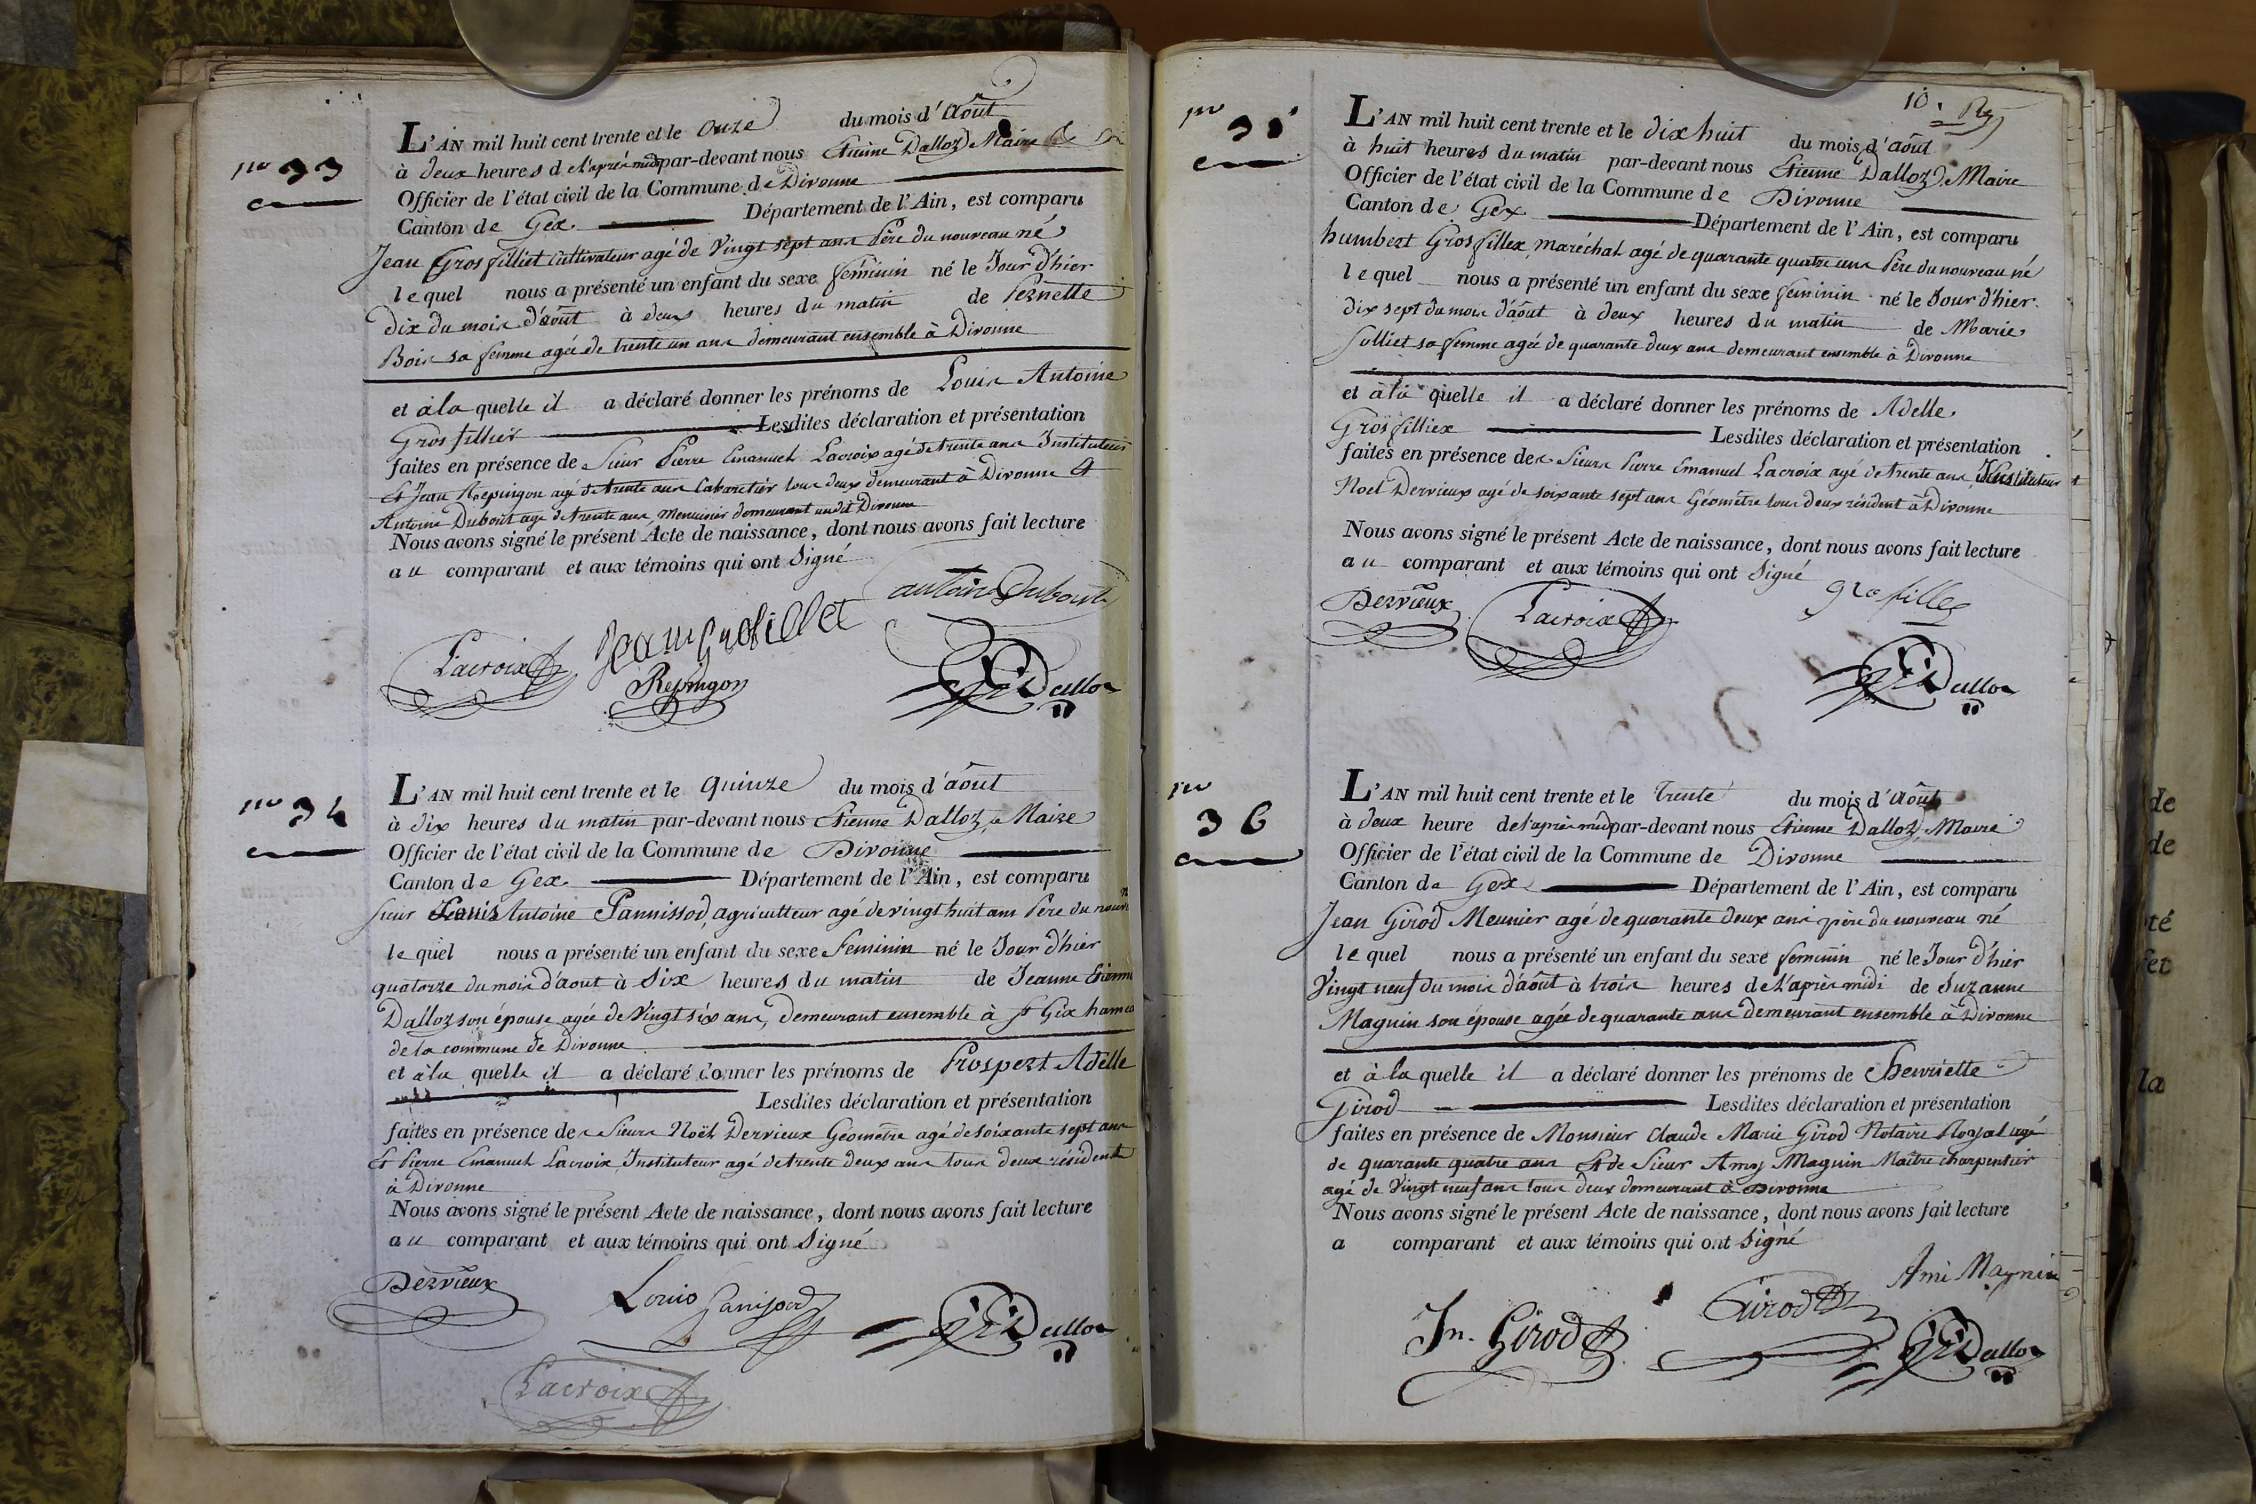 no 33
L'AN mil huit cent trente et le Onze du mois d'Août
à deux heures de l'après midi par-devant nous Etienne Dalloz Maire
Officier de l'état civil de la Commune de Divonne
Canton de Gex Département de l'Ain, est comparu
Jean Grosfilliet cultivateur agé de Vingt sept ans Père du nouveau né
lequel nous a présenté un enfant du sexe feminin né le Jour d'hier
dix du mois d'août à deux heures du matin de Pernette
Bois sa femme agée de trente un ans demeurant ensemble à Divonne
et à la quelle il a déclaré donner les prénoms de Louis Antoine
Grosfillier Lesdites déclaration et présentation
faites en présence de Sieur Pierre Emanuel Lacroix agé de trente ans Instituteur
Et Jean Repingon agé de trente ans Cabaretier tous deux demeurant à Divonne Et
Antoine Dubout agé de trente ans Menuisier demeurant au dit Divonne
Nous avons signé le présent Acte de naissance, dont nous avons fait lecture
au comparant et aux témoins qui ont Signé
antoine Dubout
Lacroix Jean Grosfillet
Repingon Dalloz
no 34
L'AN mil huit cent trente et le Quinze du mois d'août
à dix heures du matin par-devant nous Etienne Dalloz, Maire
Officier de l'état civil de la Commune de Divonne
Canton de Gex Département de l'Ain, est comparu
Sieur Louis Antoine Pannissod, agriculteur agé de vingt huit ans Père du nouv
lequel nous a présenté un enfant du sexe feminin né le Jour d'hier
quatorze du mois d'aout à Six heures du matin de Jeanne Etienne
Dalloz son épouse agée de Vingt six ans, demeurant ensemble à St Gix hameau
de la commune de Divonne
et à la quelle il a déclaré donner les prénoms de Prospert Adelle
Lesdites déclaration et présentation
faites en présence des Sieurs Noël Dervieux Géometre agé de soixante sept ans
Et Pierre Emanuel Lacroix Instituteur agé de trente deux ans tous deux résidents
à Divonne
Nous avons signé le présent Acte de naissance, dont nous avons fait lecture
au comparant et aux témoins qui ont Signé
Dervieux Louis Panissod Dalloz
Lacroix
10.
no 35
L'AN mil huit cent trente et le dix huit du mois d'août
à huit heures du matin par-devant nous Etienne Dalloz, Maire
Officier de l'état civil de la Commune de Divonne
Canton de Gex Département de l'Ain, est comparu
humbert Grosfillex, maréchal agé de quarante quatre ans Père du nouveau né
lequel nous a présenté un enfant du sexe feminin né le Jour d'hier
dix sept du mois d'août à deux heures du matin de Marie
Julliet sa femme agée de quarante deux ans demeurant ensemble à Divonne
et à la quelle il a déclaré donner les prénoms de Adelle
Grosfilliex Lesdites déclaration et présentation
faites en présence des Sieurs Pierre Emanuel Lacroix agé de trente ans, Instituteur Et
Noel Dervieux agé de soixante sept ans Géométre tous deux résident à Divonne
Nous avons signé le présent Acte de naissance, dont nous avons fait lecture
au comparant et aux témoins qui ont Signé
Dervieux Lacroix grosfillex
Dalloz
no 36
L'AN mil huit cent trente et le Trente du mois d'Août
à deux heure de l'après midi par-devant nous Etienne Dalloz, Maire
Officier de l'état civil de la Commune de Divonne
Canton de Gex Département de l'Ain, est comparu
Jean Girod Meunier agé de quarante deux ans père du nouveau né
lequel nous a présenté un enfant du sexe feminin né le Jour d'hier
Vingt neuf du mois d'août à trois heures de l'après midi de Suzanne
Magnin son épouse agée de quarante ans demeurant ensemble à Divonne
et à la quelle il a déclaré donner les prénoms de henriette
Girod Lesdites déclaration et présentation
faites en présence de Monsieur Claude Marie Girod Notaire Royal agé
de quarante quatre ans Et de Sieur Amy Magnin Maître charpentier
agé de Vingt neuf ans tous deux demeurant à Divonne
Nous avons signé le présent Acte de naissance, dont nous avons fait lecture
a comparant et aux témoins qui ont Signé
Ami Magnin
Jn. Girod Girod Dalloz
de
de
té
la